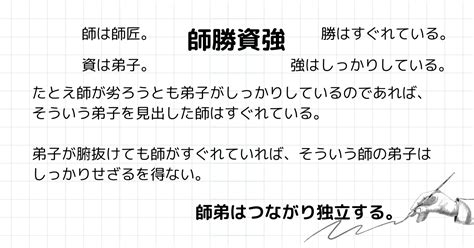 師は師匠。
師勝資強
勝はすぐれている。
資は弟子。
強はしっかりしている。
たとえ師が劣ろうとも弟子がしっかりしているのであれば、
そういう弟子を見出した師はすぐれている。
弟子が腑抜けても師がすぐれていれば、そういう師の弟子は
しっかりせざるを得ない。
師弟はつながり独立する。